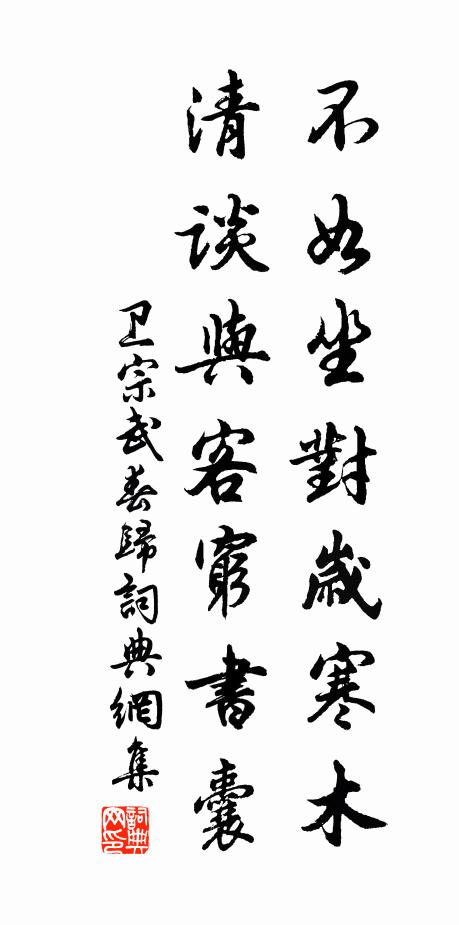 不如坐對歲寒木
清談與客窮書囊
卫宗武春歸詞典網集
詞典網印